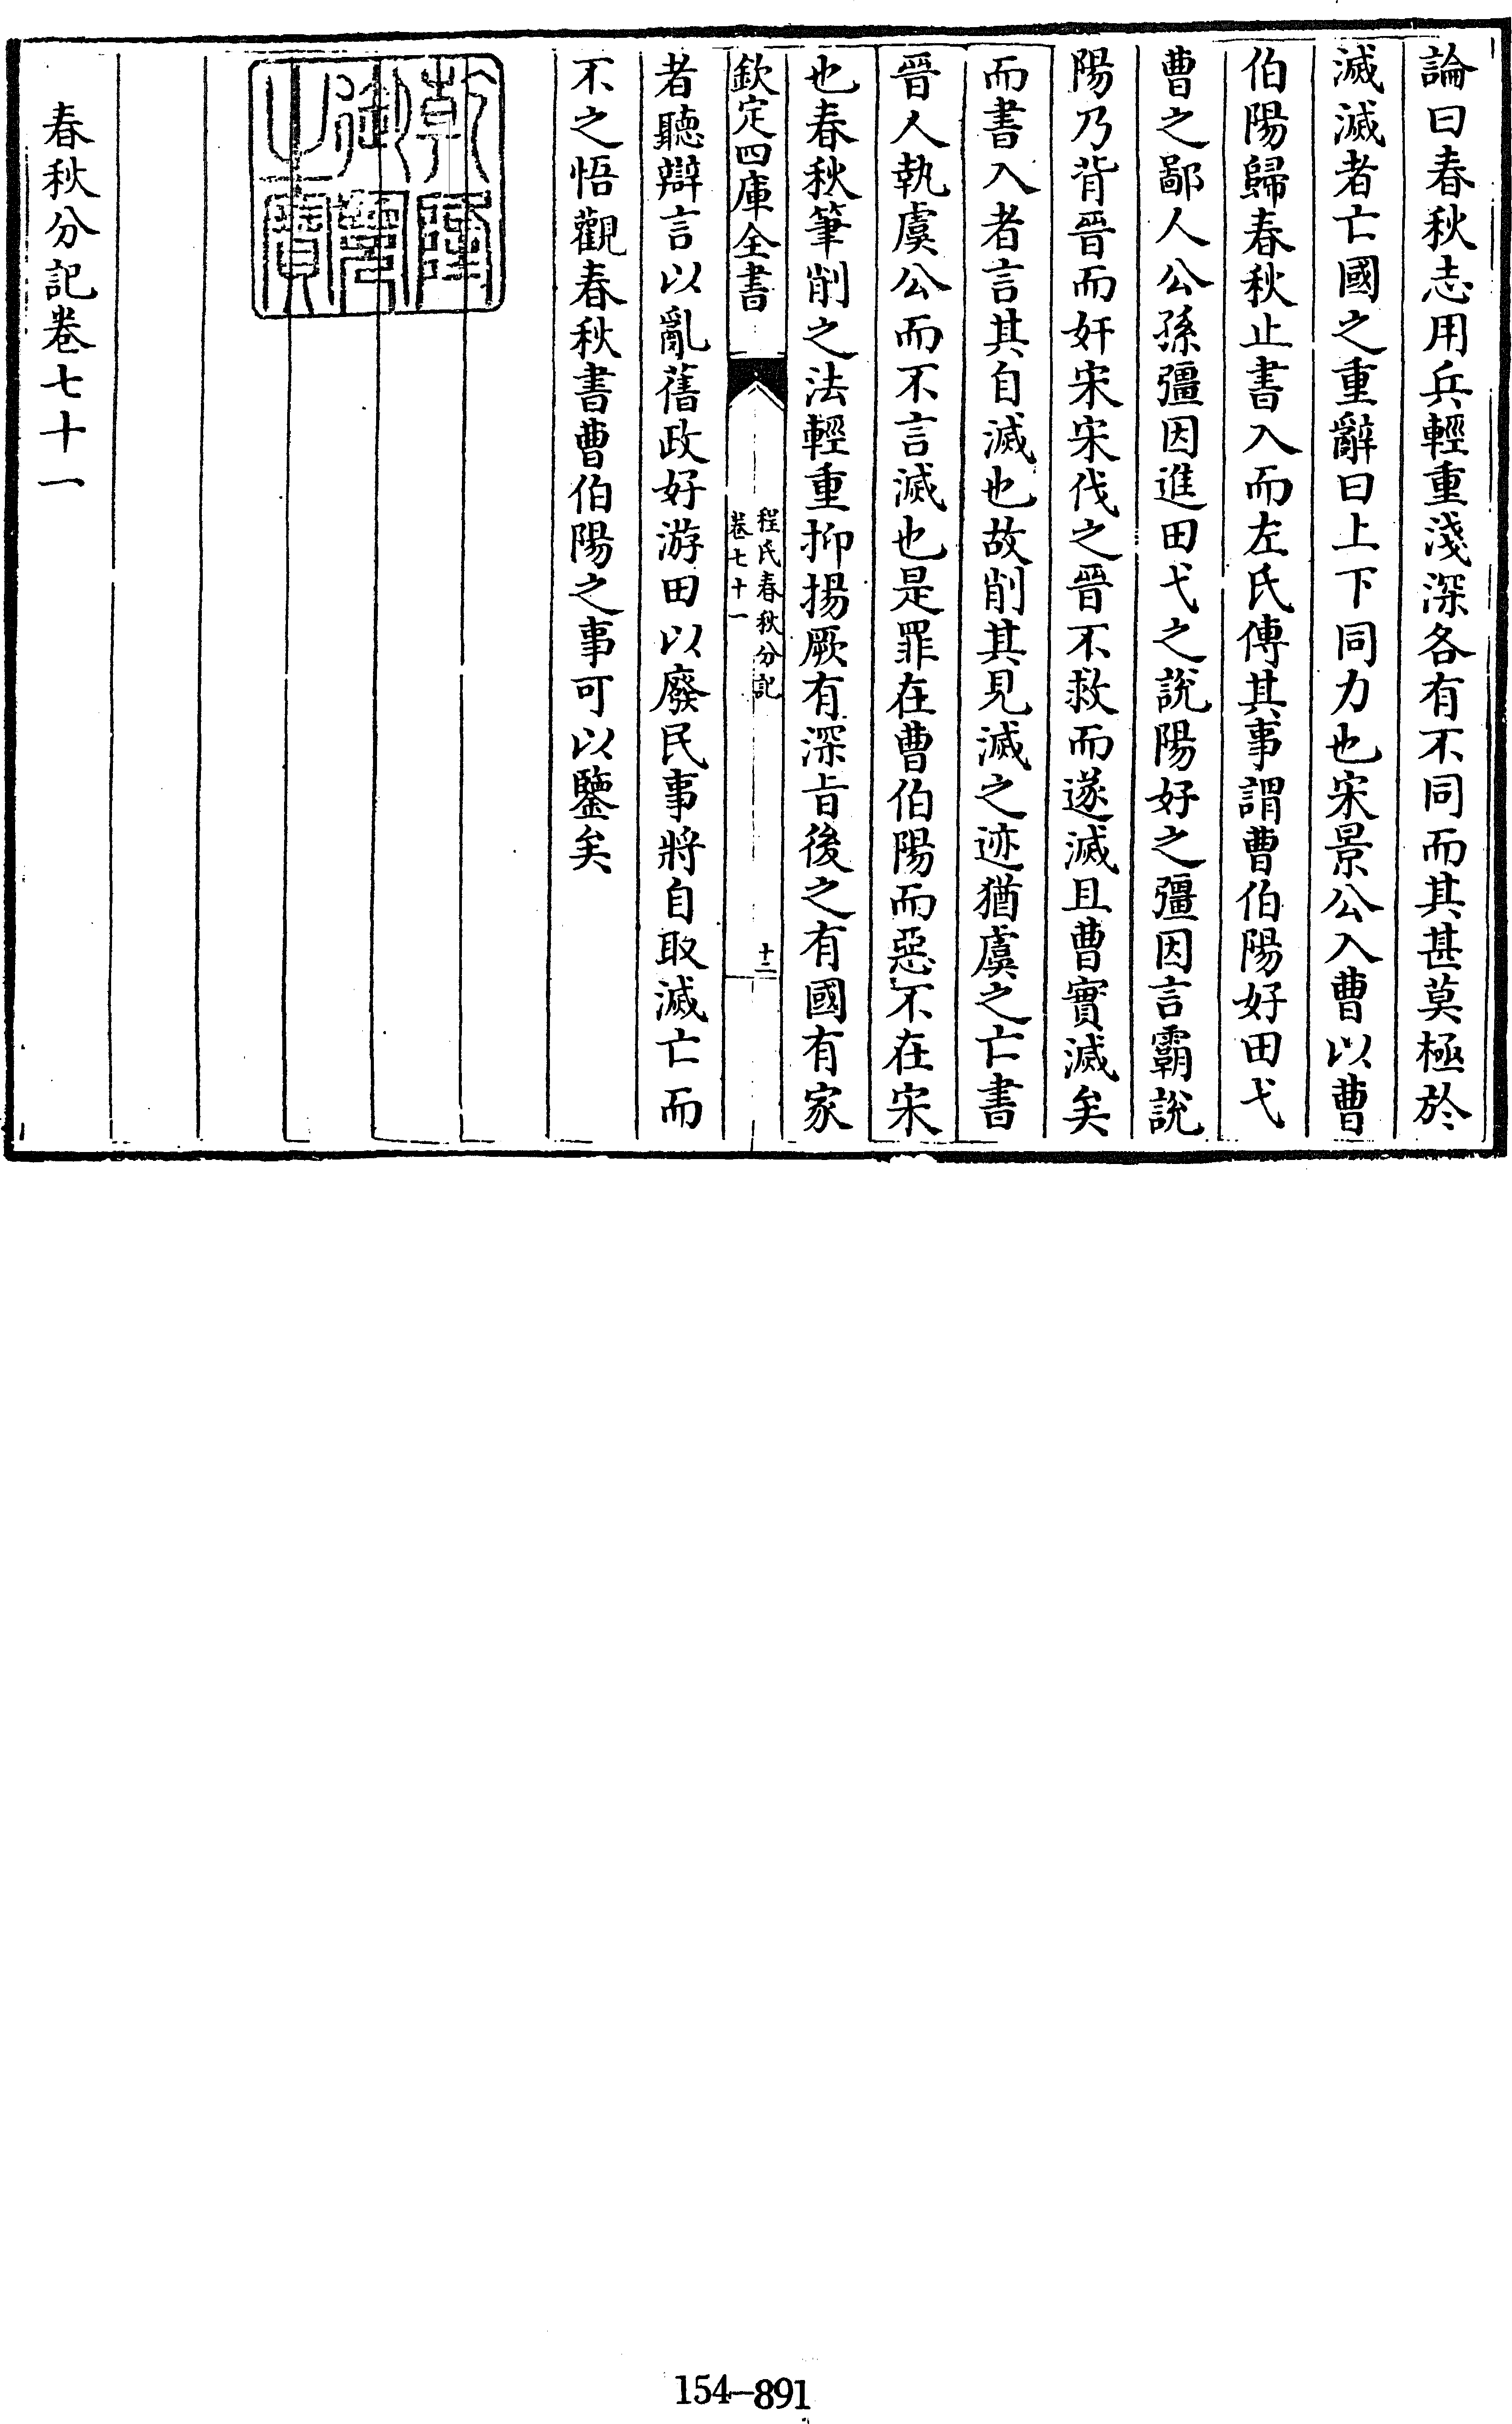 論曰春秋志用兵輕重淺深各有不同而其甚莫極於
滅滅者亡國之重辭曰上下同力也宋景公入曹以曹
伯陽歸春秋止書入而左氏傳其事謂曹伯陽好田弋
曹之鄙人公孫彊因進田弋之說陽好之彊因言霸說
陽乃背晉而奸宋宋伐之晉不救而遂滅且曹實滅矣
而書入者言其自滅也故削其見滅之迹猶虞之亡書
晉人執虞公而不言滅也是罪在曹伯陽而惡不在宋
也春秋筆削之法輕重抑揚厥有深旨後之有國有家
欽定四庫全書
程氏春秋分記
卷七十一
十二
者聽辯言以亂舊政好游田以廢民事將自取滅亡而
不之悟觀春秋書曹伯陽之事可以鑒矣
乾隆
御覽
之寶
春秋分記卷七十一
154-891